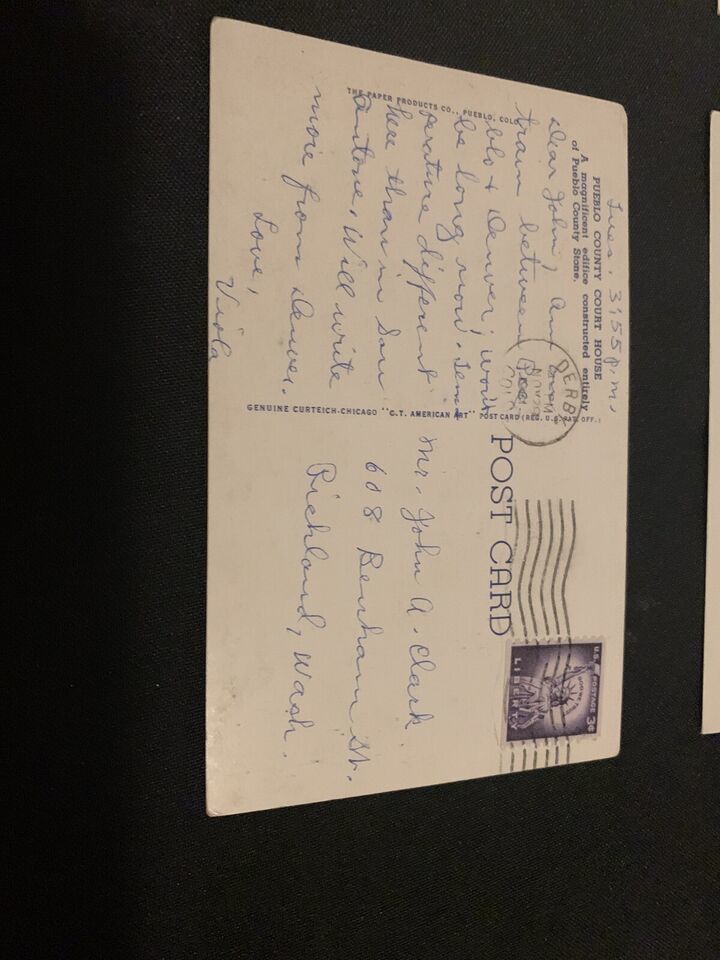 PUEBLO COUNTY COURT HOUSE
A magnificent edifice constructed entirely
of Pueblo County Stone.
Tues. 3:55 p.m.
Dear John, Am on
train between Pue-
blo & Denver; won't
be long now. Tem-
perature different
here than in San
Antone. Will write
more from Denver.
Love,
Viola
THE PAPER PRODUCTS CO., PUEBLO, COLO.
GENUINE CURTEICH-CHICAGO "C.T. AMERICAN ART" POST CARD (REG. U.S. PAT. OFF.)
POST CARD
DERBY
COLO
U.S. POSTAGE 3¢
IN GOD WE TRUST
LIBERTY
Mr. John A. Clark
608 Benham St.
Richland, Wash.